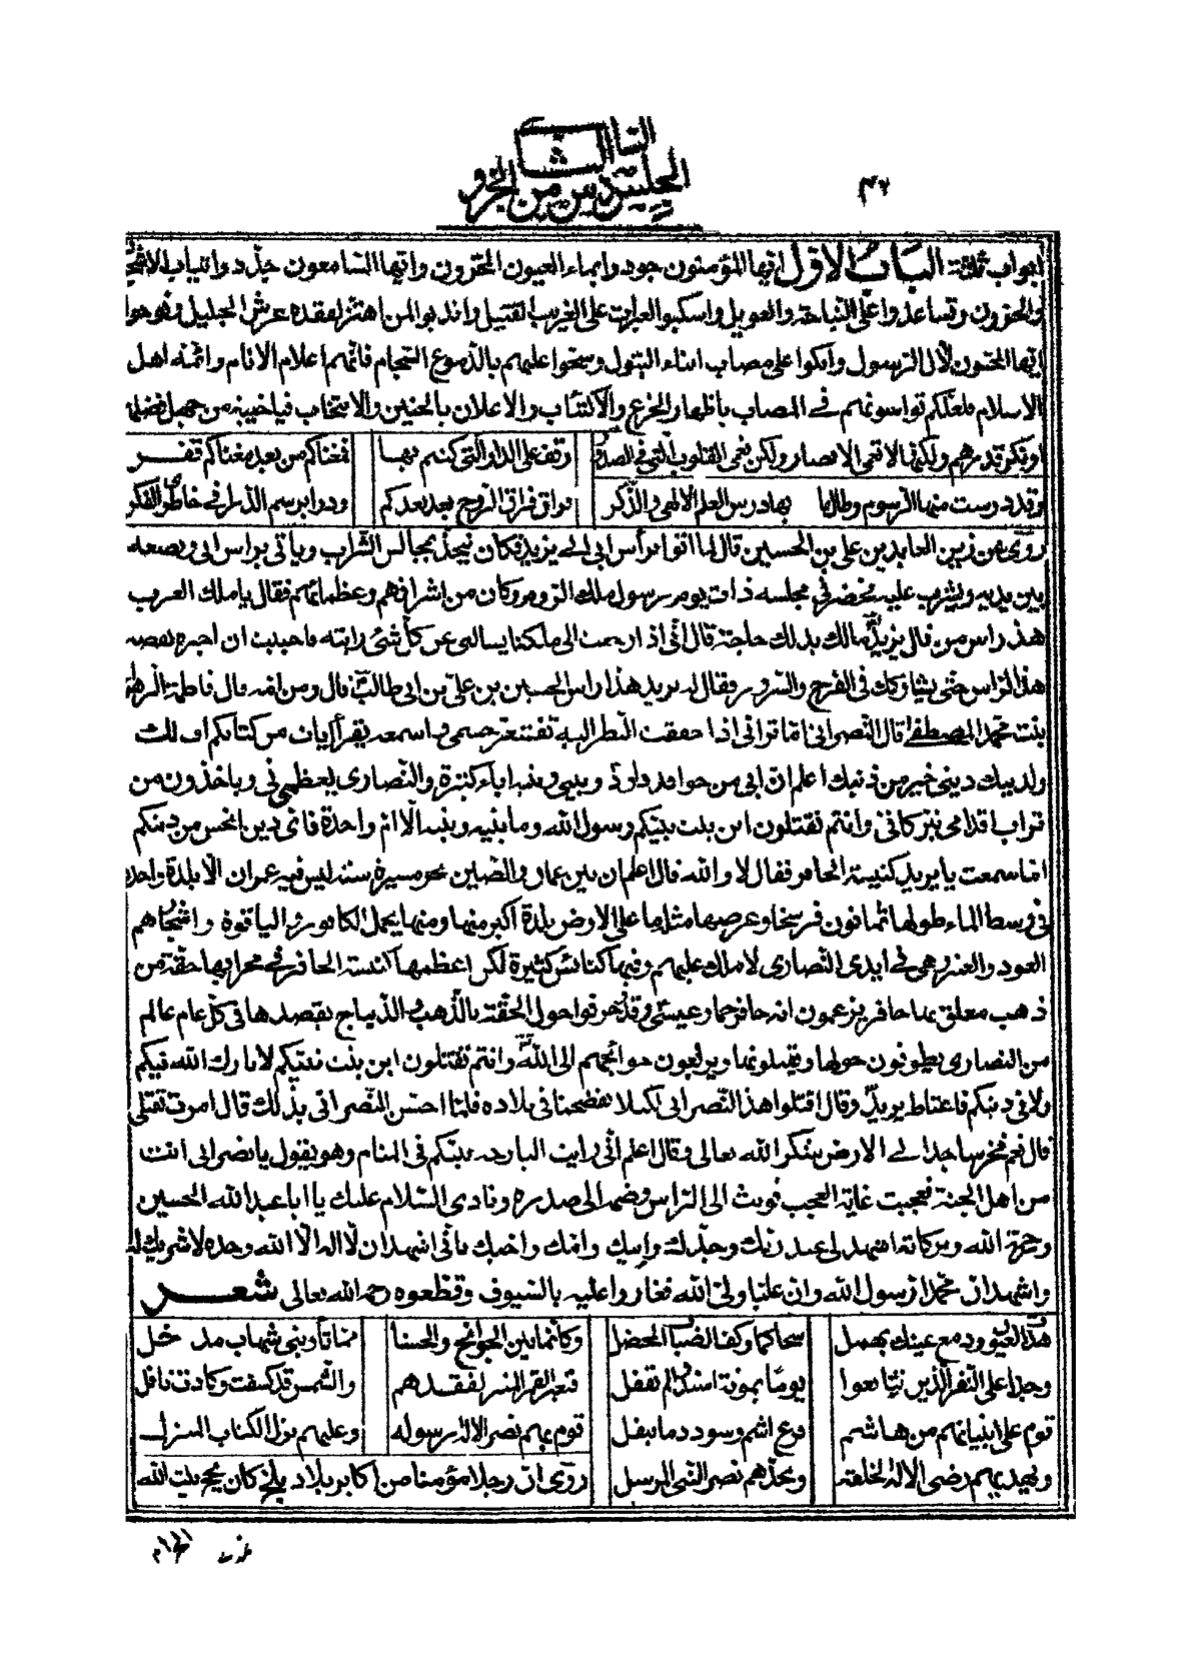 المجلس السادس من الجزو
ابواب ثلثة الباب الاول ايها المؤمنون جودوا بماء العيون المقرون وايها السامعون جدد واثياب الاشجان
والحزون وتساعدوا على النياحة والعويل واسكبوا العبرات على الغريب القتيل واندبوا لمن اهتز لفقده عرش الجليل ونوحوا
ايها المحبون لآل الرسول وابكوا على مصاب ابناء البتول وسحوا عليهم بالدموع السجام فانهم اعلام الانام وائمة اهل
الاسلام فلعلكم تواسونهم في المصاب باظهار الجزع والاكتئاب والاعلان بالحنين والانتحاب فيا خيبة من جهل فضلهم
اونكر قدرهم ولكنها لا تعمى الابصار ولكن تعمى القلوب التي في الصدور
وقفت على الدار التي كنتم بها
فمغناكم من بعد معناكم قفر
وقد درست منها الرسوم وطالما
بها درس العلم الالهي والذكر
فراق فراق الروح بعد بعدكم
ودوا برسم الدار في خاطري الفكر
روى عن زين العابدين علي بن الحسين قال لما اتوا براس ابي الى يزيد فكان يتخذ مجالس الشراب وياتي براس ابي ويضعه
بين يديه ويشرب عليه فحضر في مجلسه ذات يوم رسول ملك الروم وكان من اشرافهم وعظمائهم فقال يا ملك العرب
هذا راس من قال يزيد مالك بذلك حاجة قال اني اذا رجعت الى ملكنا يسالني عن كل شئ رايته فاحببت ان اخبره بقصة
هذا الراس حتى يشاركك في الفرح والسرور فقال له يزيد هذا راس الحسين بن علي بن ابي طالب قال ومن امه قال فاطمة الزهراء
بنت محمد المصطفى قال النصراني
ولدينك ديني خير من دينك اعلم ان ابي من حوافد داود وبيني وبينه اباء كثيرة والنصارى يعظموني وياخذون من
تراب اقدامي تبركا في وانتم تقتلون ابن بنت نبيكم رسول الله وما بينه وبينه الا ام واحدة فاى دين انحس من دينكم
اما سمعت يا يزيد كنيسة الحافر فقال لا والله قال اعلم ان بين عمان والصين بحر مسيرة سنة ليس فيه عمران الا بلدة واحدة
في وسط الماء طولها ثمانون فرسخا وعرضها مثلها ما على الارض بلدة اكبر منها ومنها يحمل الكافور والياقوت واشجارهم
العود والعنبر وهي في ايدى النصارى لا ملك عليهم وفيها كنائس كثيرة لكن اعظمها كنيسة الحافر في محرابها حقة من
ذهب معلق بها حافر يزعمون انه حافر حمار عيسى وقد زخرفوا حول الحقة بالذهب والديباج يقصدها في كل عام عالم
من النصارى يطوفون حولها ويقبلونها ويرفعون حوائجهم الى الله وانتم تقتلون ابن بنت نبيكم لا بارك الله فيكم
ولا في دينكم فاغتاظ يزيد وقال اقتلوا هذا النصراني لكيلا يفضحنا في بلاده فلما احسن النصراني بذلك قال امرت بقتلي
قال نعم فخر ساجدا الى الارض يشكر الله تعالى وقال اعلم اني رايت البارحة نبيكم في المنام وهو يقول يا نصراني انت
من اهل الجنة فعجبت غاية العجب فوثب الى الراس وضمه الى صدره ونادى السلام عليك يا ابا عبد الله الحسين
ورحمة الله وبركاته اشهد لى عند ربك وجدك وابيك وامك واخيك باني اشهد ان لا اله الا الله وحده لا شريك له
واشهد ان محمدا رسول الله وان عليا ولي الله فغاروا عليه بالسيوف وقطعوه رحمه الله تعالى شعر
هذا الغيور دمع عينك يهمل
سحا كما وكف الضباب المخضل
وكانما بين الجوانح والحشا
مما تأوبني شهاب مدخل
وجدا على النفر الذين تتابعوا
يوما بموتة اسندوا لم تقفل
فتغير القمر المنير لفقدهم
والشمس قد كسفت وكادت تافل
قوم على بنيانهم من هاشم
فرع اشم وسودد ما ينقل
قوم بهم نصر الاله رسوله
وعليهم نزل الكتاب المنزل
وبهديهم رضى الاله لخلقه
وبجدهم نصر النبي المرسل
روى ان رجلا مؤمنا من اكابر بلاد بلخ كان يحج بيت الله